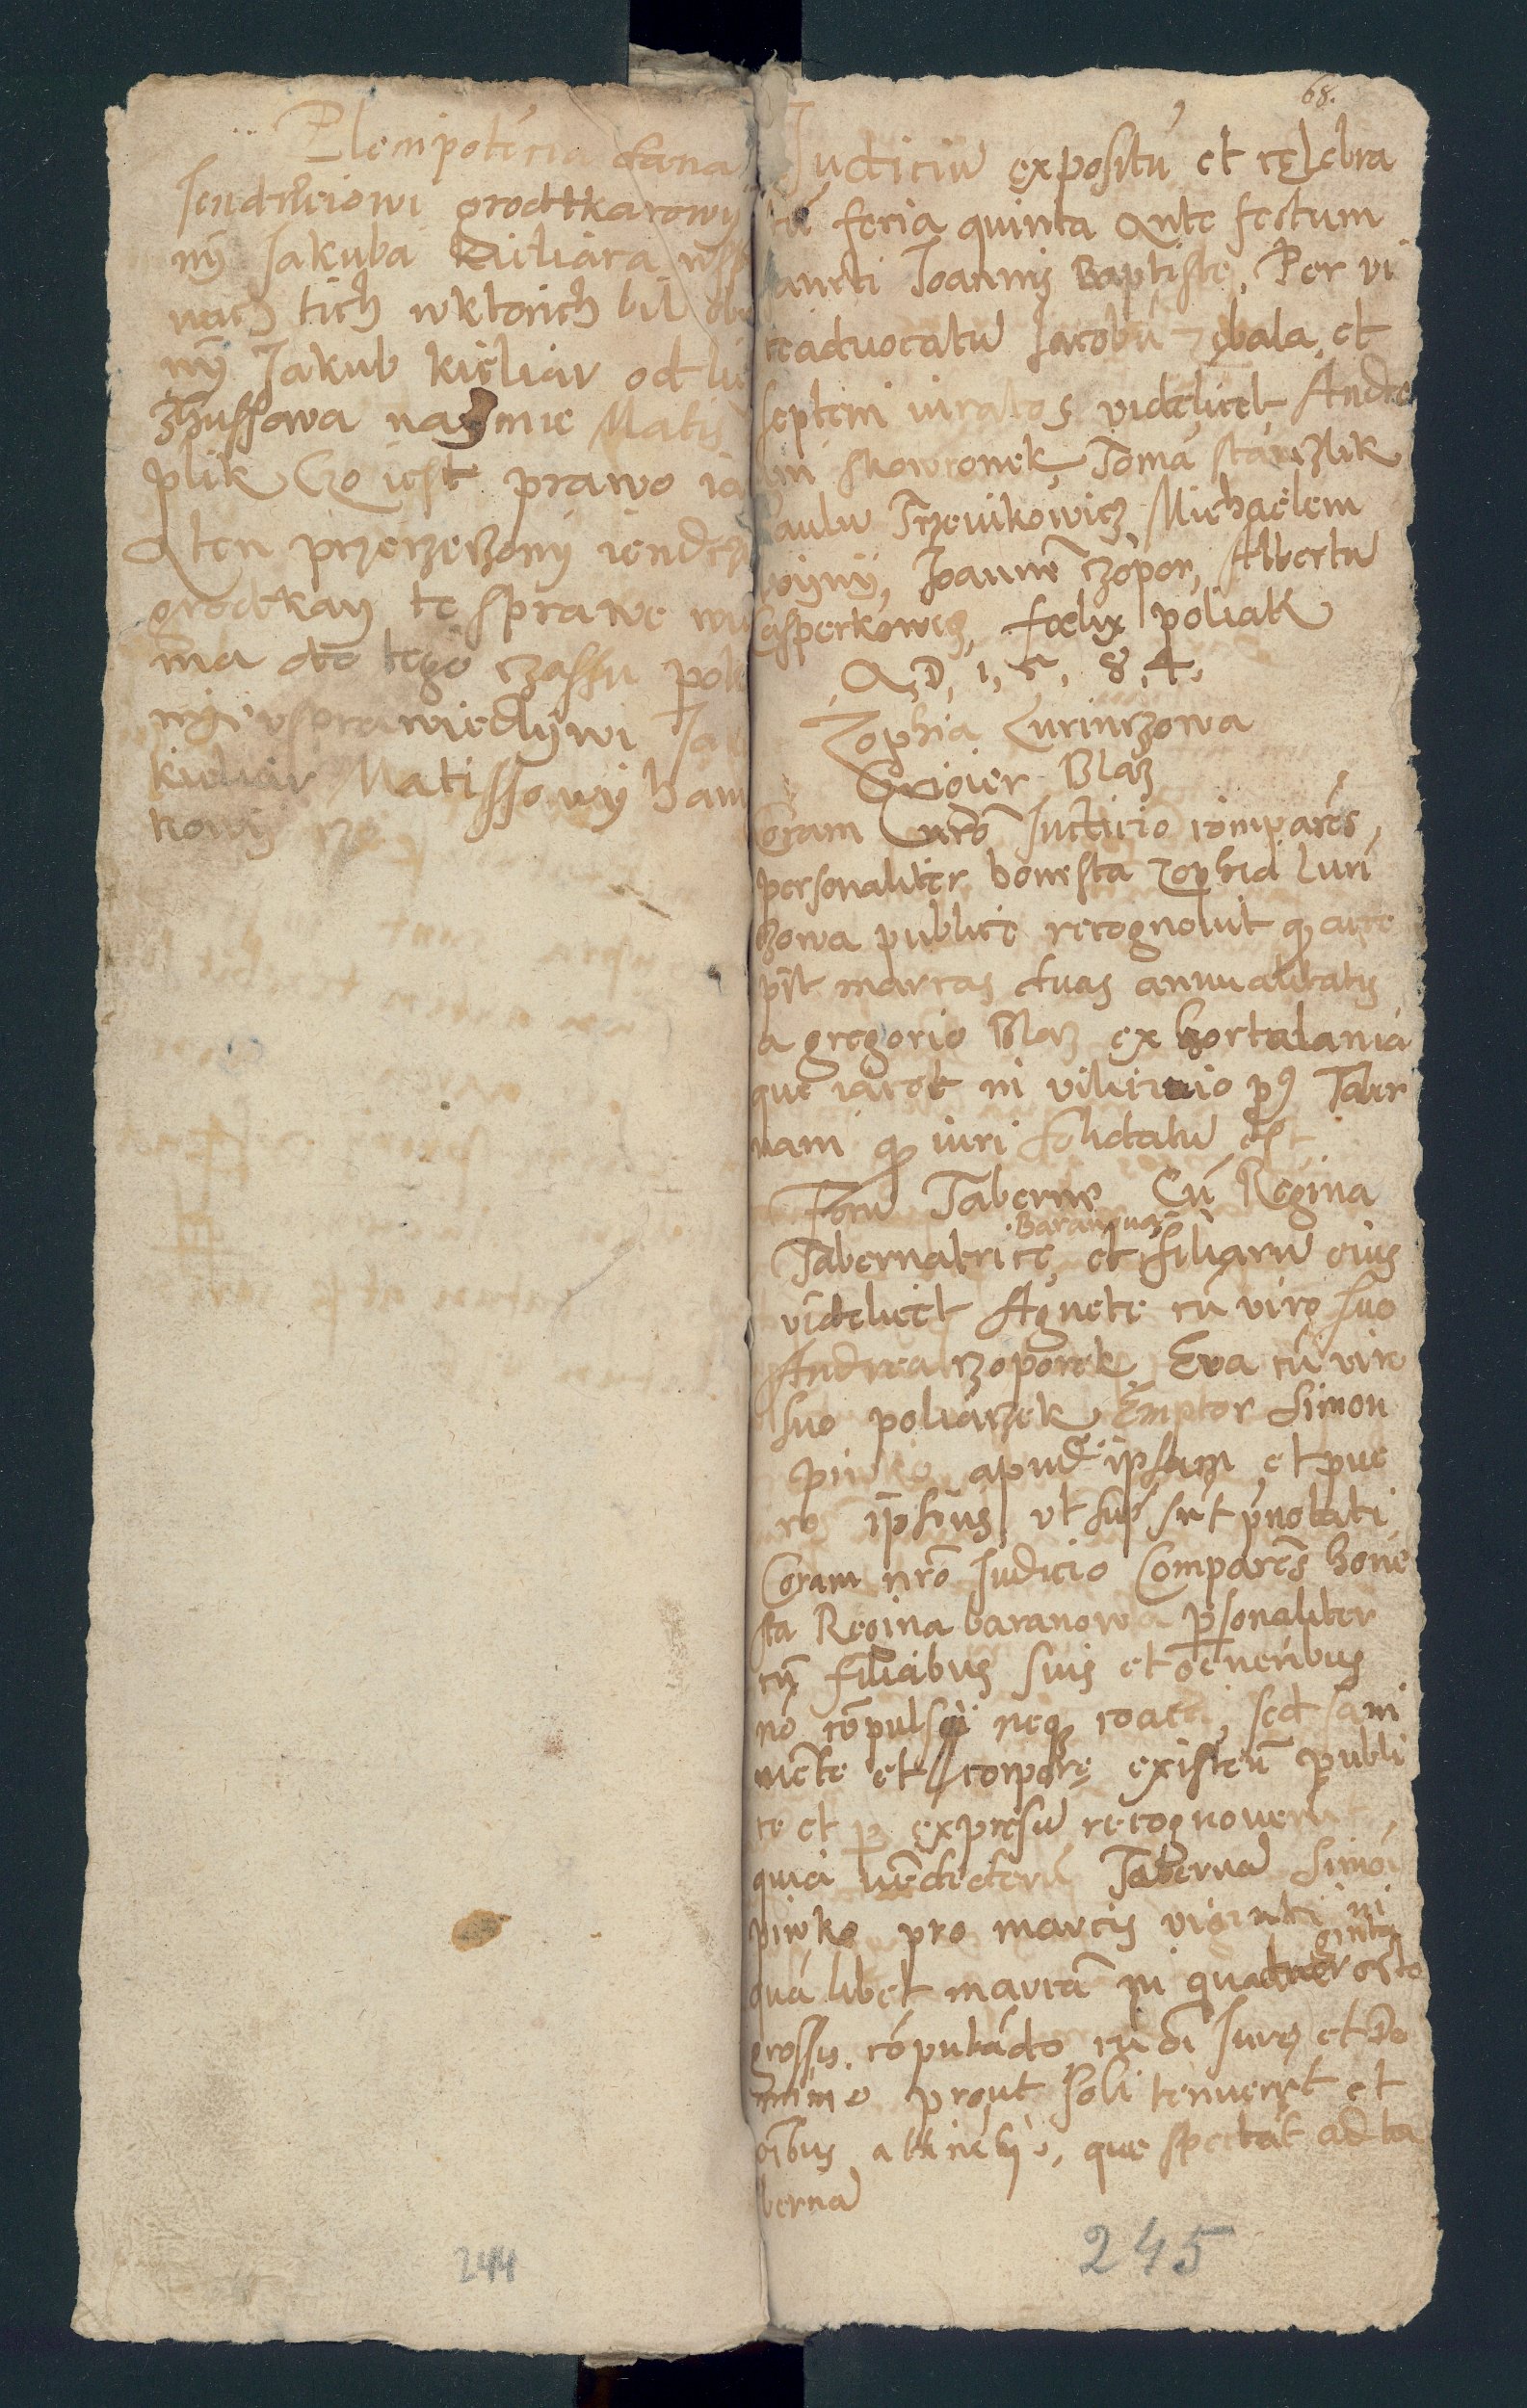 Plenipotécia dana
Jendrzeiowi grodtkarowy
ny Jakuba kieliara
nach tich wktorich bil
ny Jakub kieliar od
Thussowa na mie Matis
plik Czo iest prawo
A ten przerzeczony iendrz
grodtkarz te sprawe
ma do tego czassu
nye vsprawiedlywi Ja
kieliar Matissowy ham
kowy czo
244
68.
Judiciu expositu et celebra
tu feria quinta Ante festum
sancti Joannis Baptiste, Per vi
ceaduocatu Jacobu zębala et
septem iuratos videlicet Andre
am skowronek, Toma starczlik
Paulu Trzenikowicz Michaelem
woyny, Joanne czopor, Albertu
Casperkowicz, foelix poliak
A, D, 1, 5, 8, 4,
Zophia Lurinczowa
Grigier Blaz
Coram nro Judicio compares,
personaliter honesta Zophia Luri
czowa publice recognouit q acce
pit marcas duas annualitatis
a gregorio Blaz ex hortalania
que iacet in vilicinio p9 Taber
nam q iuri solidatu est
Foru Taberne Cu Regina
Baranowa
Tabernatrice, et filiaru eius
videlicet Agnete cu viro suo
Andrea czoporek, Eva cu viro
suo poliaczek Emptor Simon
piwko apud ipsam et pue
ros ipsius, vt sup sut pnotati
Coram nro Judicio Compares hone
sta Regina baranowa psonaliter
cu filiabus suis et generibus
no copulsi neq coacti, sed sani
mete et corpore existeu publi
ce et p expresu recognoueru
quia uedideru Taberna Simoi
piwko pro marcis viginti in
ginta
qua libet marca in quadra octo
grossis coputado cu oi Jure et Do
minio prout soli tenueret et
oibus attinetijs, que spectat ad ta
berna
245